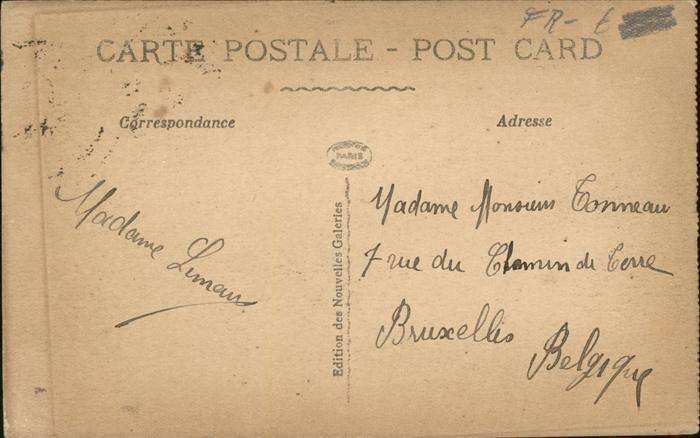 FR- E
CARTE POSTALE - POST CARD
Correspondance
Adresse
PARIS
Edition des Nouvelles Galeries
Madame
Madame Monsieur Tonneau
7 rue du Chemin de Terre
Bruxelles
Belgique